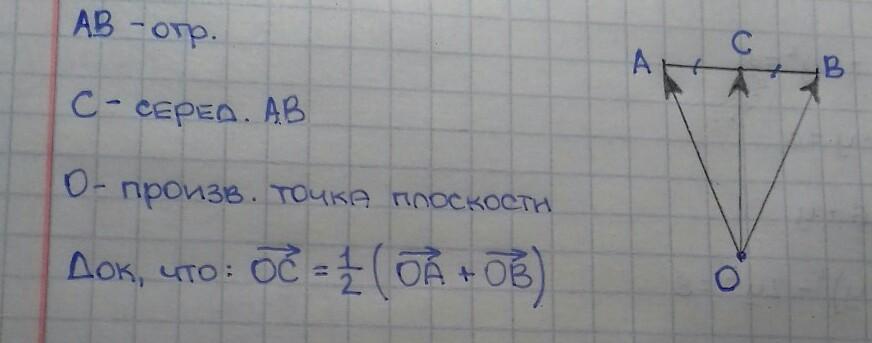 AB – отр.
C – серед. AB
O – произв. точка плоскости
Док, что: $\overrightarrow{OC} = \frac{1}{2}(\overrightarrow{OA} + \overrightarrow{OB})$
A C B
O